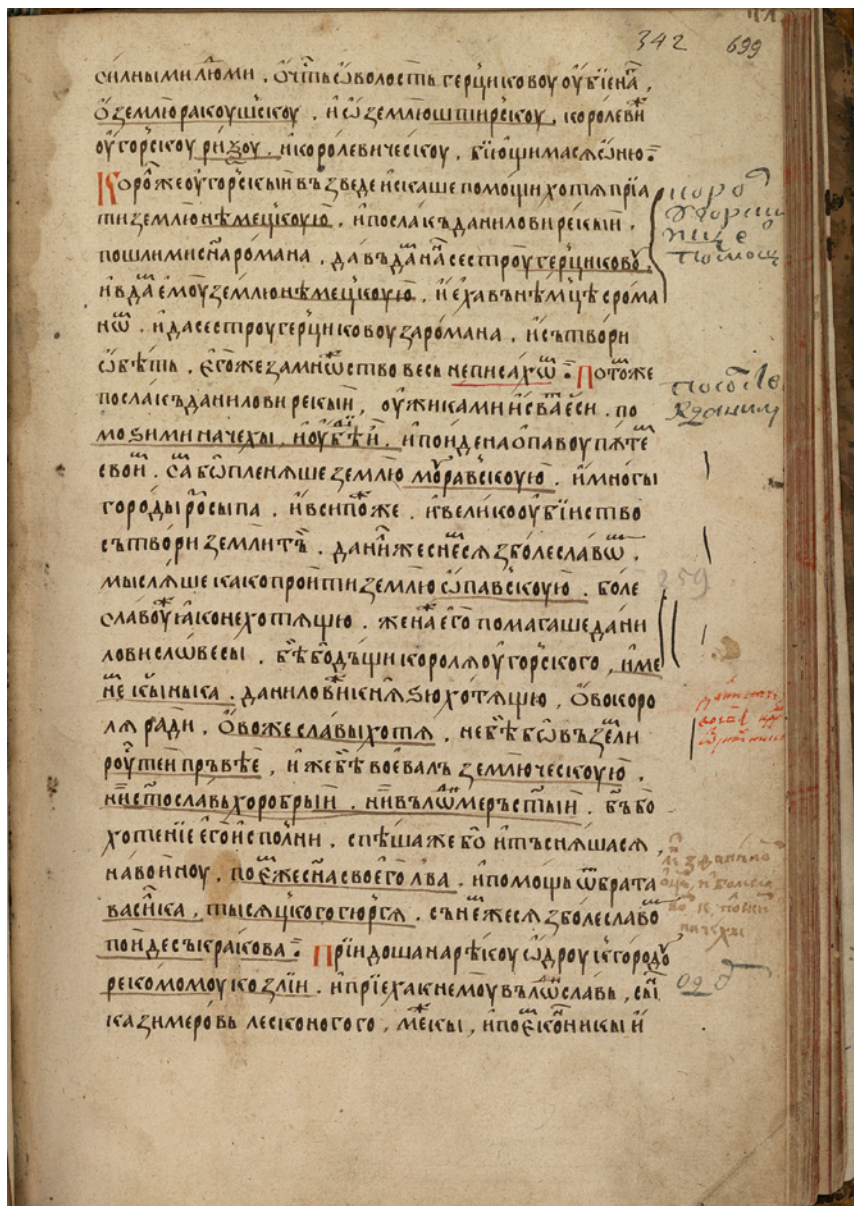 342 699
силными людми . ѡчть ѡ волость герциковоу оубїена ,
ѡ землю ракоушскоу . и ѡ землю штирскоу , королеви
оугорскоу ризоу . и королеви ческоу . бїющимася ѡ ню :
Коро же оугорскыи въ зведе искаше помощи хотя прїа
ти землю нѣмецкоую . и посла къ данилови рекыи .
пошли ми сна романа . да въдам на сестроу герциковоу .
и вдам емоу землю нѣмецкоую . и еха в нѣмцѣ с рома
нѡ . и да сестроу герциковоу за романа . и сътвори
ѡбѣть . егоже за множство весь не писахѡ : Потоже
посла къ данилови рекыи , оужика ми и сват еси . по
моѕи ми на чехы , и оубѣди и . и поиде на опавоу путе
свои . сам бо пленяше землю моравскоую . и многы
городы россыпа . и вси пожже . и велико оубїиство
сътвори земли тъ . данило же снесяся з болеславѡ .
мысляше како проити землю ѡпавскоую . боле
славоу же не хотящю . жена его помагаше дани
лови словесы . бѣ бо дъщи короля оугорского , име
не кыныка . данилови же княѕю хотящю , ѡво коро
ля ради . ѡво же славы хотя , не бѣ бо въ земли
роустеи пръвѣе , иже бѣ воевалъ землю ческоую .
ни стославь хоробрыи . ни вълодимеръ стыи . бъ бо
хотенїе его исполни . спѣшаше бо и тъсняшася
на воиноу . поем же сна своего лва . и помощь ѡт брата
василка , тысяцкого гюргя . снем же ся з болеславо
поиде съ кракова : Прїидоша на рѣкоу ѡдроу к городоу
рекомомоу козлїи . и прїеха к немоу вълодиславь , снь
казимеровь лесконогого , межкы , и поем конникы и